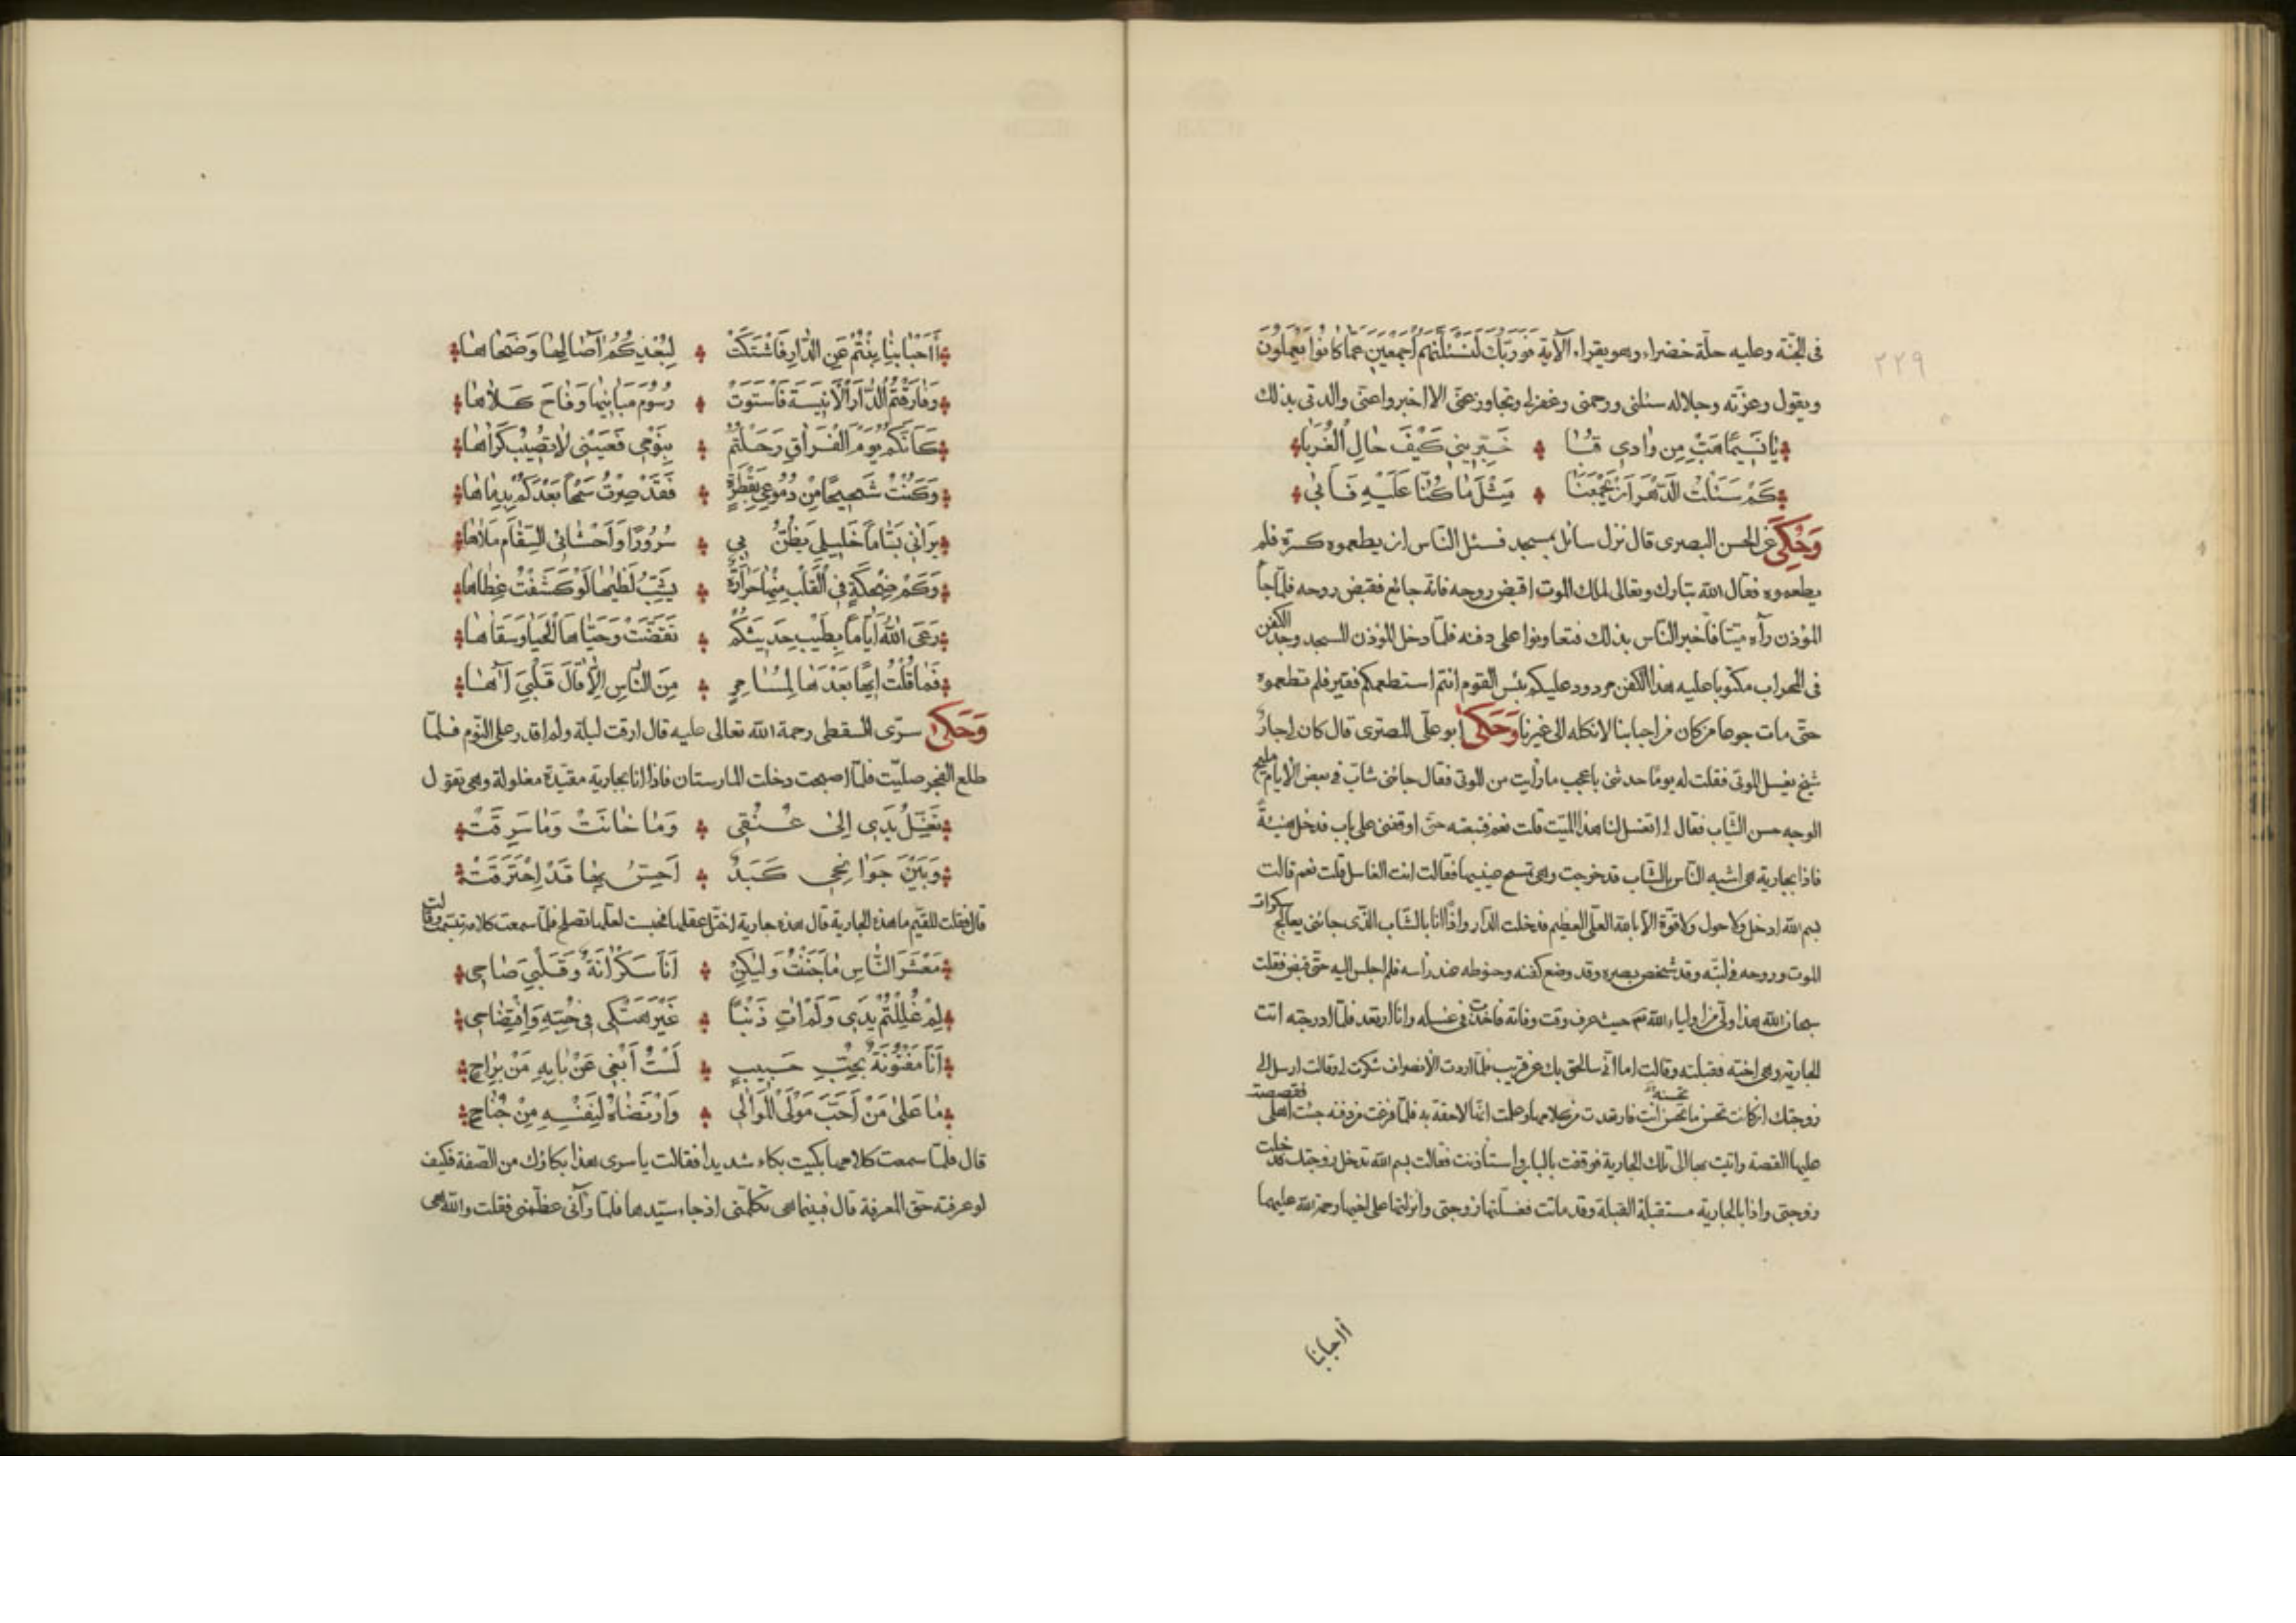 ٢٢٩
فى الجنّة وعليه حلّة خضراء وهو يقراء الآية فَوَرَبِّكَ لَنَسْئَلَنَّهُمْ أَجْمَعِينَ عَمَّا كَانُوا يَعْمَلُونَ
ويقول وعزّته وجلاله سئلنى ورحمنى وغفرلى وتجاوز عنّى الا اخبروا عنّى والدتى بذلك
يَا نَسِيمًا هَبَّ مِن وَادِى قُبَا خَبِّرِينِى كَيْفَ حَالِ الْغُرَبَا
كَمْ سَئَلْتُ الدَّهْرَ اَنْ يَجْمَعَنَا مِثْلَ مَا كُنَّا عَلَيْهِ فَاَبٰى
وَحُكِىَ عن الحسن البصرى قال نزل سائل بمسجد فسئل النّاس ان يطعموه كسرة فلم
يطعموه فقال الله تبارك وتعالى لملك الموت اقبض روحه فانّه جائع فقبض روحه فلمّا جآ
المؤذن رآه ميّتا فاخبر النّاس بذلك فتعاونوا على دفنه فلمّا دخل المؤذن المسجد وجد الكفن
فى المحراب مكتوبا عليه هذا الكفن مردود عليكم بئس القوم انتم استطعمكم فقير فلم تطعموه
حتّى مات جوعا من كان من احبابنا لا نكله الى غيرنا وَحَكٰى ابو على المصرى قال كان لى جارٌ
شيخ يغسل الموتى فقلت له يومًا حدثنى باعجب ما رأيت من الموتى فقال جائنى شابّ فى بعض الايام مليح
الوجه حسن الثياب فقال لى اتغسل لنا هذا الميّت قلت نعم فتبعته حتّى اوقفنى على باب فدخل هنيئةً
فاذا بجارية هى اشبه النّاس بالشّاب قد خرجت وهى تمسح عينيها فقالت انت الغاسل قلت نعم قالت
بسم الله ادخل ولا حول ولا قوّة الّا بالله العلى العظيم فدخلت الدّار واذا انا بالشّاب الذّى جائنى يعالج سكرات
الموت وروحه فى لبّته وقد شخص بصره وقد وضع كفنه وحنوطه عند رأسه فلم اجلس اليه حتّى قبض فقلت
سبحان الله هذا ولىّ من اولياء الله تعم حيث عرف وقت وفاته فاخذت فى غسله وانا ارتعد فلمّا ادرجته اتت
الجارية وهى اخته فقبلته وقالت اما انّى سالحق بك عن قريب فلمّا اردت الانصراف شكرت لى وقالت ارسل الى
زوجتك ان كانت تحسن ما تحسنه انت فارتعدت من كلامها وعلمت انّها لاحقة به فلمّا فرغت من دفنه جئت اهلى فقصصت
عليها القصّة واتيت بها الى تلك الجارية فوقفت بالباب واستأذنت فقالت بسم الله تدخل زوجتك فدخلت
زوجتى واذا بالجارية مستقبلة القبلة وقد ماتت فغسلتها زوجتى وانزلتها على اخيها رحمة الله عليهما
أاحبابنا
أَاَحْبَابَنَا بِنْتُمْ عَنِ الدَّارِ فَاشْتَكَتْ لِبُعْدِكُمُ آصَالُهَا وَضُحَاهَا
وَفَارَقْتُمُ الدَّارَ الْاَنِيسَةَ فَاسْتَوَتْ رُسُومُ مَبَانِيهَا وَفَاحَ كَلَاهَا
كَاَنَّكُمُ يَوْمَ الْفِرَاقِ رَحَلْتُمْ بِنَوْمِى فَعَيْنِى لَا تُصِيبُ كَرَاهَا
وَكُنْتُ شَحِيحًا مِنْ دُمُوعِى بِقَطْرَةٍ فَقَدْ صِرْتُ سَمْحًا بَعْدَكُمْ بِدِمَاهَا
يَرَانِى بَسَّامًا خَلِيلِى يَظُنُّ بِى سُرُورًا وَاَحْشَائِى السَّقَامُ مَلَاهَا
وَكَمْ ضِحْكَةٍ فِى الْقَلْبِ مِنْهَا حَرَارَةٌ يَشِبُّ لَظٰيهَا لَوْ كَشَفْتُ غِطَاهَا
رَعَى اللهُ اَيَّامًا بِطِيبِ حَدِيثِكُمْ تَقَضَّتْ وَحَيَّاهَا الْحَيَا وَسَقَاهَا
فَمَا قُلْتُ اِيهًا بَعْدَهَا لِمُسَامِرٍ مِنَ النَّاسِ اِلَّا قَالَ قَلْبِىَ آهَا
وَحَكٰى سرّى السقطى رحمة الله تعالى عليه قال ارقت ليلة ولم اقدر على النّوم فلمّا
طلع الفجر صليّت فلمّا اصبحت دخلت المارستان فاذا انا بجارية مقيّدة مغلولة وهى تقول
تَغُلُّ يَدِى اِلٰى عُنُقِى وَمَا خَانَتْ وَمَا سَرِقَتْ
وَبَيْنَ جَوَانِحِى كَبَدٌ اَحِسُّ بِهَا قَدْ اِحْتَرَقَتْ
قال فقلت للقيّم ما هذه الجارية قال هذه جارية اختلّ عقلها فحبست لعلّها تصلح فلمّا سمعت كلامه تبسّمت وقالت
مَعْشَرَ النَّاسِ مَا جَنَنْتُ وَلٰكِنْ اَنَا سَكْرَانَةٌ وَقَلْبِىَ صَاحِى
لِمْ غَلَلْتُمْ يَدِى وَلَمْ اٰتِ ذَنْبًا غَيْرَ هَتْكِى فِى حُبِّهِ وَافْتِضَاحِى
اَنَا مَفْتُونَةٌ بِحُبِّ حَبِيبٍ لَسْتُ اَبْغِى عَنْ بَابِهِ مَنْ بَرَاحٍ
مَا عَلٰى مَنْ اَحَبَّ مَوْلَى الْمَوَالِى وَارْتَضَاهُ لِنَفْسِهِ مِنْ جُنَاحٍ
قال فلمّا سمعت كلامها بكيت بكاء شديدا فقالت يا سرى هذا بكاؤك من الصّفة فكيف
لو عرفته حق المعرفة قال فبينما هى تكلّمنى اذ جاء سيّدها فلمّا رآنى عظّمنى فقلت والله هى